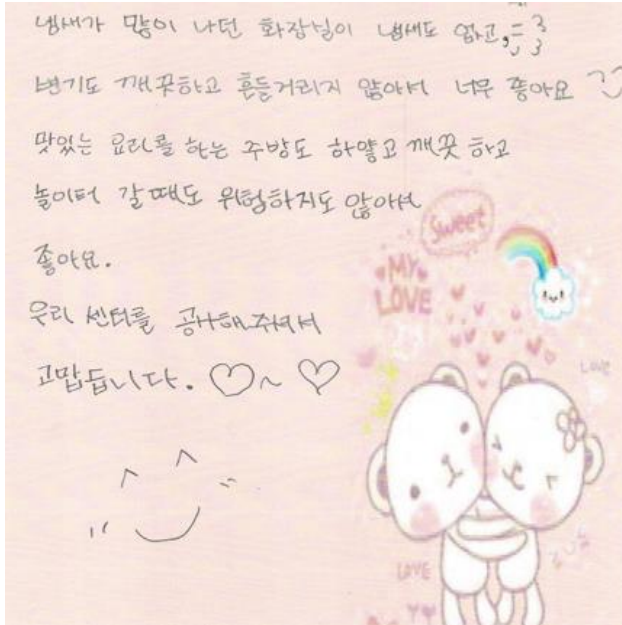 냄새가 많이 나던 화장실이 냄새도 없고,
변기도 깨끗하고 흔들거리지 않아서 너무 좋아요
맛있는 요리를 하는 주방도 하얗고 깨끗 하고
놀이터 갈 때도 위험하지도 않아서
좋아요.
우리 센터를 공사해주셔서
고맙습니다. ♡~ ♡
Sweet
MY
LOVE
LOVE
LOVE